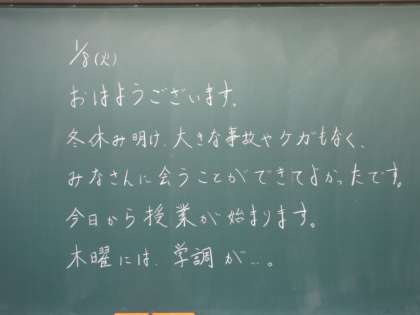 1/8(火)
おはようございます。
冬休み明け、大きな事故やケガもなく、
みなさんに会うことができてよかったです。
今日から授業が始まります。
木曜には、学調が…。